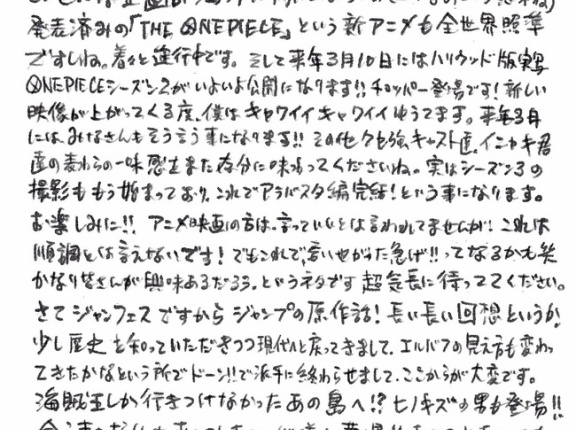 発表済みの「THE ONE PIECE」という新アニメも全世界照準
ですしね。着々と進行中です。そして来年3月10日にはハリウッド版実写
ONEPIECEシーズン2がいよいよ公開になります!!チョッパー登場です!新しい
映像が上がってくる度、僕はキャワイイキャワイイゆうてます。来年3月
には、みなさんもそう言う事になります!!その他クセ強キャスト達、イニャキ君
達の麦わらの一味感をまた存分に味わってくださいね。実はシーズン3の
撮影ももう始まっており、これでアラバスタ編完結!という事になります。
お楽しみに!! アニメ映画の方は、言っていいとは言われてませんが、これは
順調とは言えないです!でもこれで、言いやがった急げ!!ってなるかも笑
かなり皆さんが興味あるだろう、というネタです 超気長に待っててください。
さてジャンフェスですからジャンプの原作話!長い長い回想というか、
少し歴史を知っていただきつつ現代へと戻ってきまして、エルバフの見え方も変わっ
てきたかなという所でドーン!!で派手に終わらせまして、ここからが大変です。
海賊王しか行きつけなかったあの島へ!?ヒノキズの男も登場!!